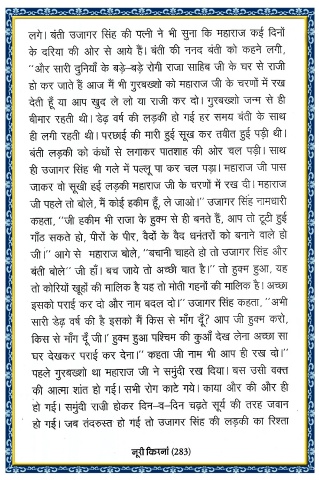 लगे। बंती उजागर सिंह की पत्नी ने भी सुना कि महाराज कई दिनों
के दरिया की ओर से आये हैं। बंती की ननद बंती को कहने लगी,
"और सारी दुनियाँ के बड़े–बड़े रोगी राजा साहिब जी के घर से राजी
हो कर जाते हैं आज मैं भी गुरबख्शो को महाराज जी के चरणों में रख
देती हूँ या आप खुद ले लो या राजी कर दो। गुरबख्शो जन्म से ही
बीमार रहती थी। डेढ़ वर्ष की लड़की हो गई हर समय बंती के साथ
ही लगी रहती थी। परछाई की मारी हुई सूख कर तवीत हुई पड़ी थी।
बंती लड़की को कंधों से लगाकर पातशाह की ओर चल पड़ी। साथ
ही उजागर सिंह भी गले में पल्लू पा कर चल पड़ा। महाराज जी पास
जाकर वो सूखी हई लड़की महाराज जी के चरणों में रख दी। महाराज
जी पहले तो बोले, मैं कोई हकीम हूँ, ले जाओ।" उजागर सिंह नामधारी
कहता, "जी हकीम भी राजा के हुक्म से ही बनते हैं, आप तो टूटी हुई
गाँठ सकते हो, पीरों के पीर, वैदों के वैद धनंतरों को बनाने वाले हो
जी।" आगे से महाराज बोले, "बचानी चाहते हो तो उजागर सिंह और
बंती बोले" जी हाँ। बच जाये तो अच्छी बात है।" तो हुक्म हुआ, यह
तो कोरियों खूहों की मालिक है यह तो मोती गहनों की मालिक है। अच्छा
इसको पराई कर दो और नाम बदल दो।" उजागर सिंह कहता, "अभी
सारी डेढ़ वर्ष की है इसको मैं किस से माँग दूँ? आप जी हुक्म करो,
किस से माँग दूँ जी।' हुक्म हुआ पश्चिम की कुआँ देख लेना अच्छा सा
घर देखकर पराई कर देना।" कहता जी नाम भी आप ही रख दो।"
पहले गुरबख्शो था महाराज जी ने समुंदी रख दिया। बस उसी वक्त
की आत्मा शांत हो गई। सभी रोग काटे गये। काया और की और ही
हो गई। समुंदी राजी होकर दिन–व–दिन चढ़ते सूर्य की तरह जवान
हो गई। जब तंदरुस्त हो गई तो उजागर सिंह की लड़की का रिश्ता
नूरी किरनां (283)